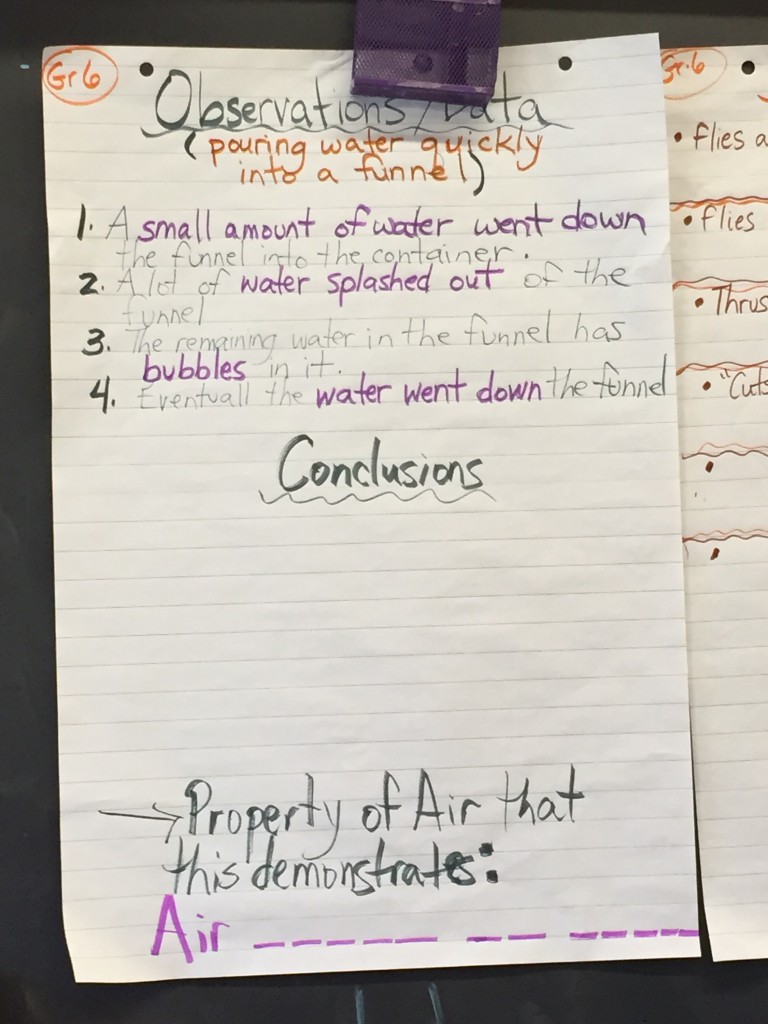 Gr 6
Observations/Data
(pouring water quickly
into a funnel)
1. A small amount of water went down
the funnel into the container.
2. A lot of water splashed out of the
funnel
3. The remaining water in the funnel has
bubbles in it.
4. Eventuall the water went down the funnel
Conclusions
→ Property of Air that
this demonstrates:
Air _ _ _ _ _ _ _ _ _ _ _
Gr.6
• flies
• flies
• Thrus
• "Cuts